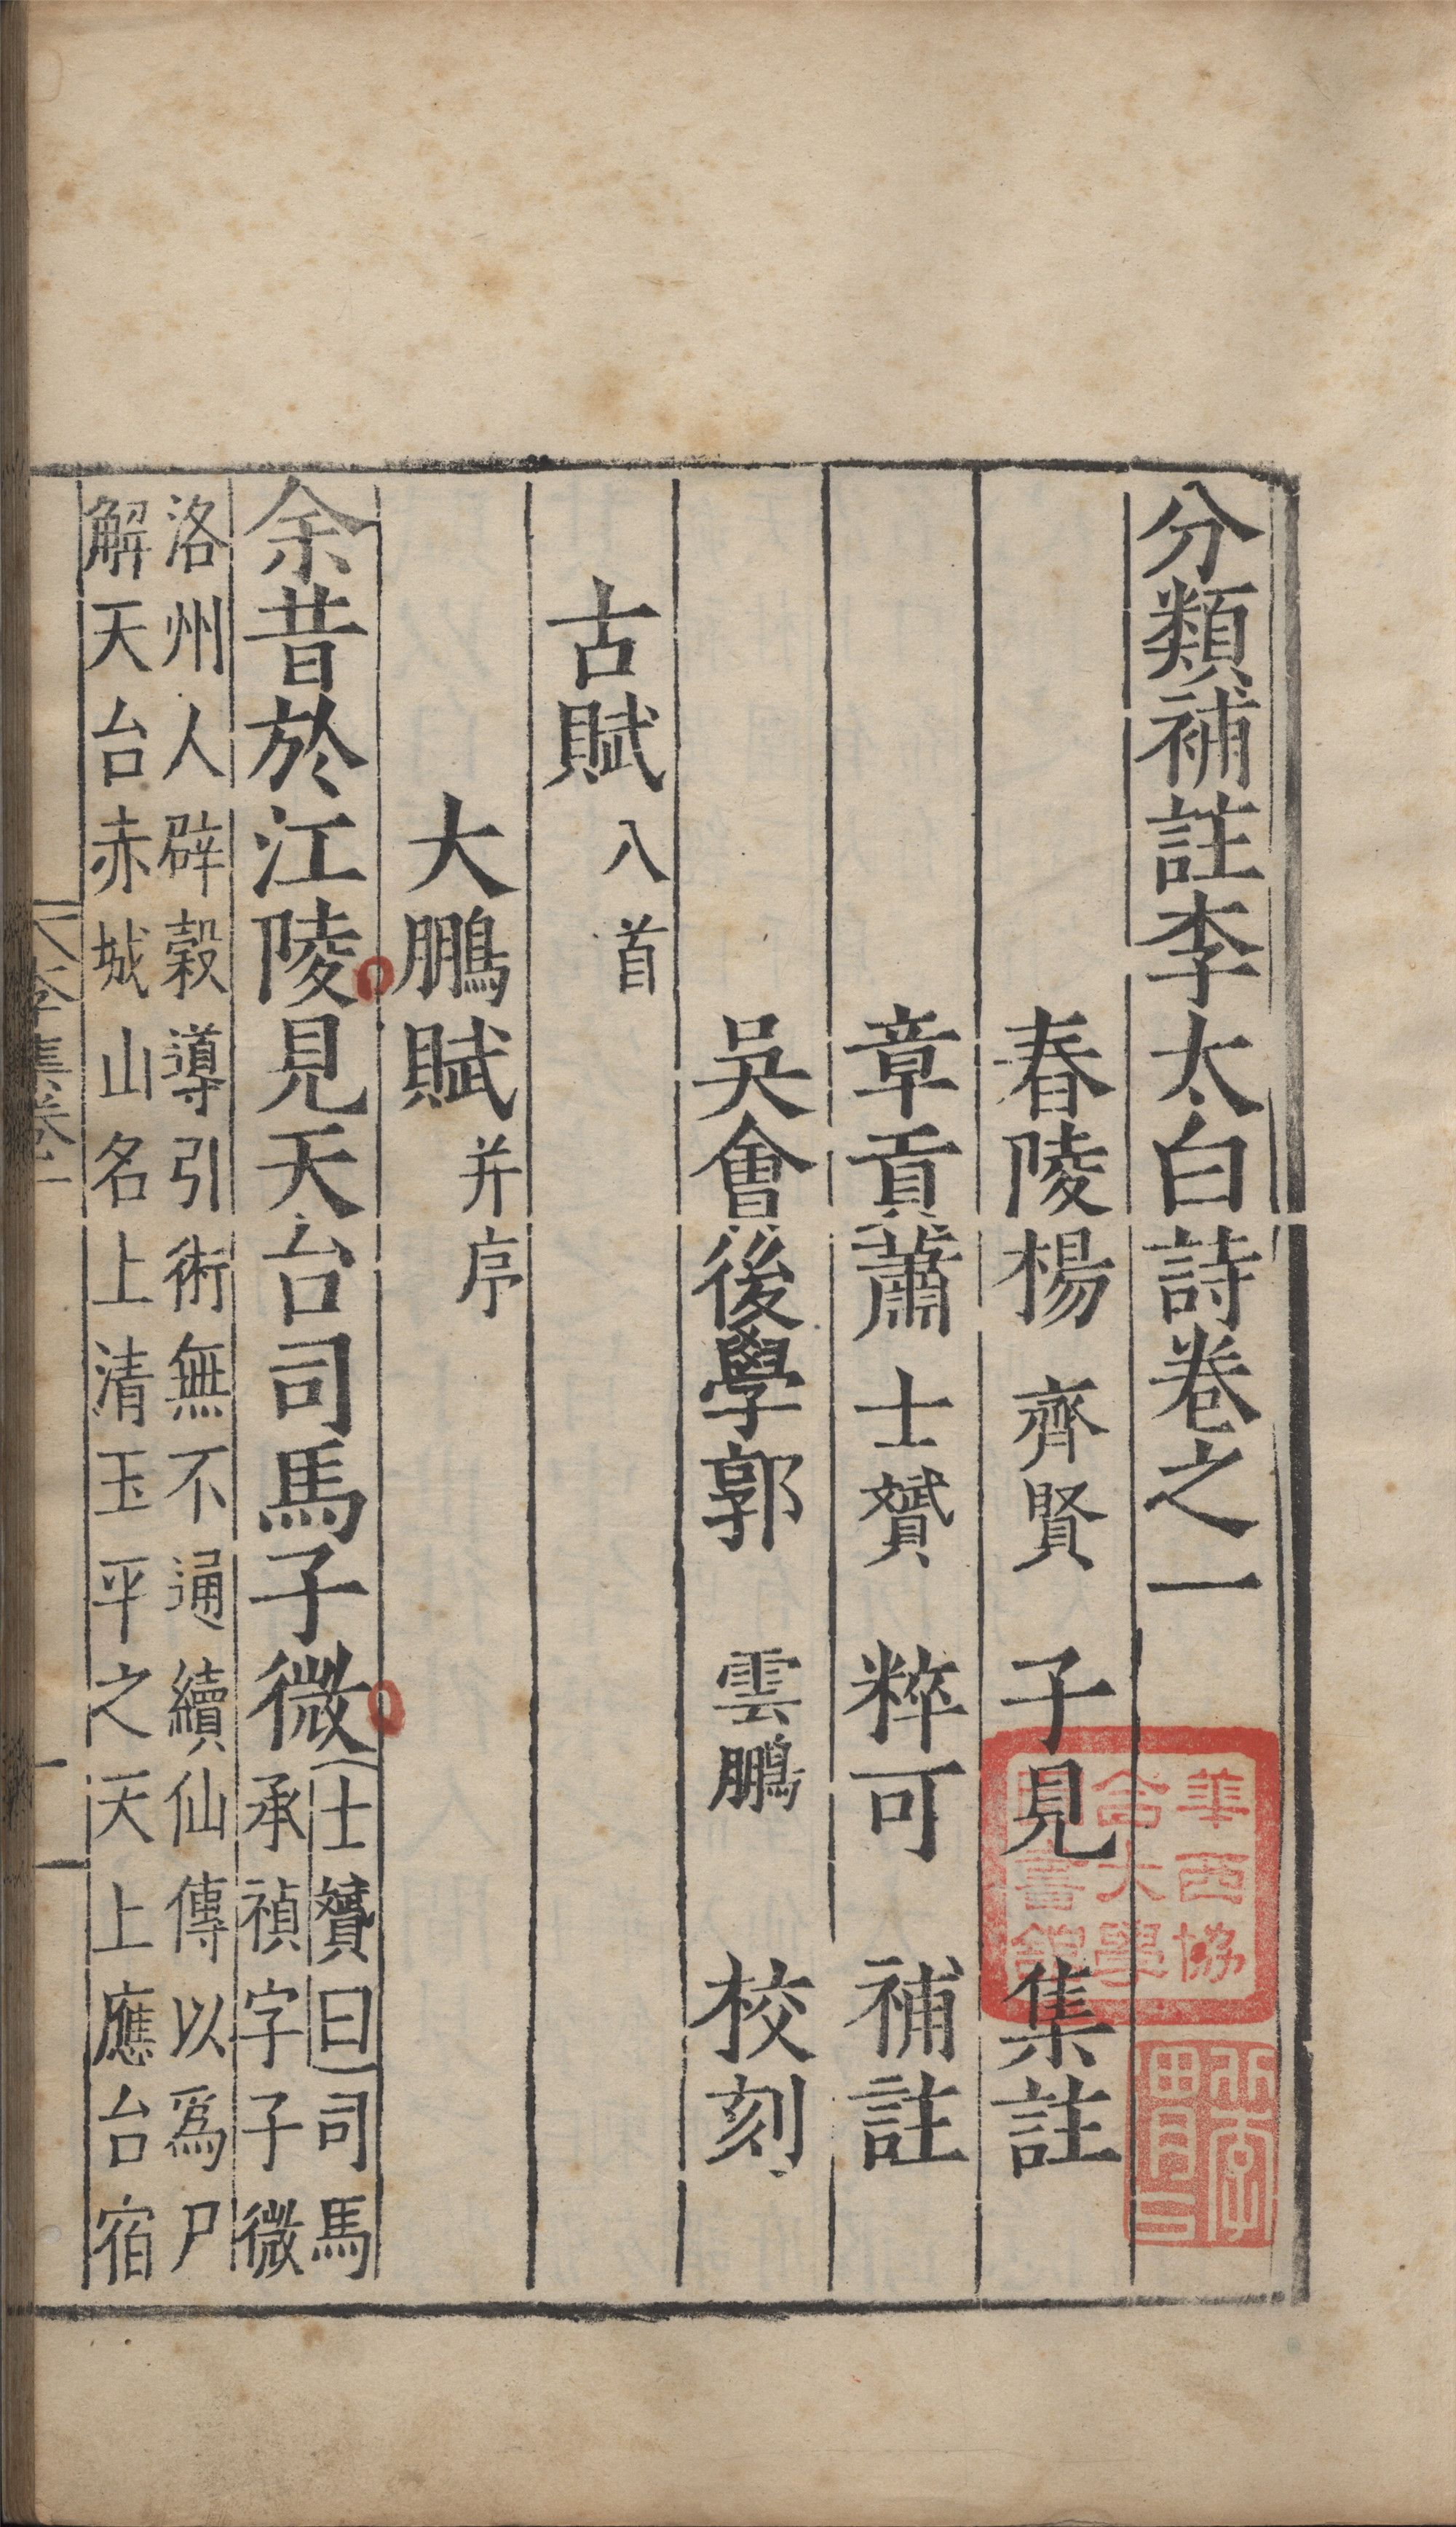 分類補註李太白詩卷之一
春陵楊 齊賢 子見 集註
章貢蕭 士贇 粹可 補註
吳會後學郭 雲鵬 校刻
古賦 八首
大鵬賦 并序
余昔於江陵見天台司馬子微
士贇曰司馬
承禎字子微
洛州人辟穀導引術無不通續仙傳以爲尸
解天台赤城山名上清玉平之天上應台宿
李集卷一
一
華西協
合大學
圖書館